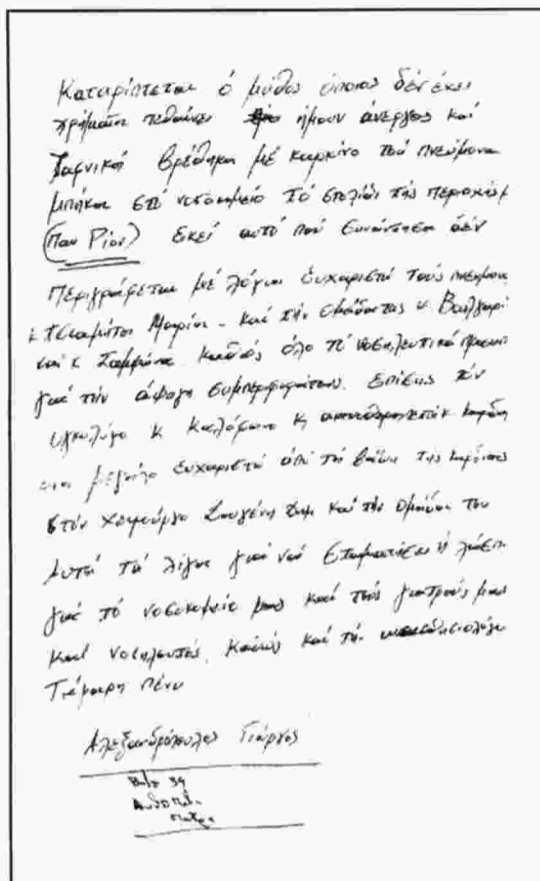 Καταρίπτεται ὁ μύθος όποιος δέν έχει
χρήματα πεθαίνει ήμουν άνεργος καί
ξαφνικά βρέθηκα μέ καρκίνο τού πνεύμονα
μπήκα στό νοσοκομείο τό στολίδι τής περιοχής
(Παν Ρίου) εκεί αυτό πού συνάντησα δέν
περιγράφεται μέ λόγια ευχαριστώ τούς
Μαρία - καί τήν ομάδα της κ Βουλγαρι
καί κ Σαμψών καθώς όλο τό νοσηλευτικό
γιά τήν άψογη συμπεριφορά των. Επίσης τόν
ογκολόγο κ Καλόφωνο κ
ενα μεγάλο ευχαριστώ από τά βάθη τής καρδιάς
στόν χειρούργο καί τήν ομάδα του
Αυτά τά λίγα γιά νά σταματήσει ή λάσπη
γιά τό νοσοκομείο μας καί τούς γιατρούς μας
καί νοσηλευτές. Καθώς καί τήν
Πένυ
Αλεξανδρόπουλος Γιώργος
34